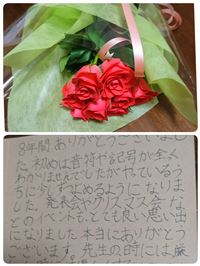 8年間ありがとうございまし
た。初めは音符や記号が全く
わかりませんでしたがやっているう
ちに少しずつよめるようになりま
した。発表会やクリスマス会な
どのイベントも、とても良い思い出
になりました。本当にありがとう
ございます。先生の時には厳